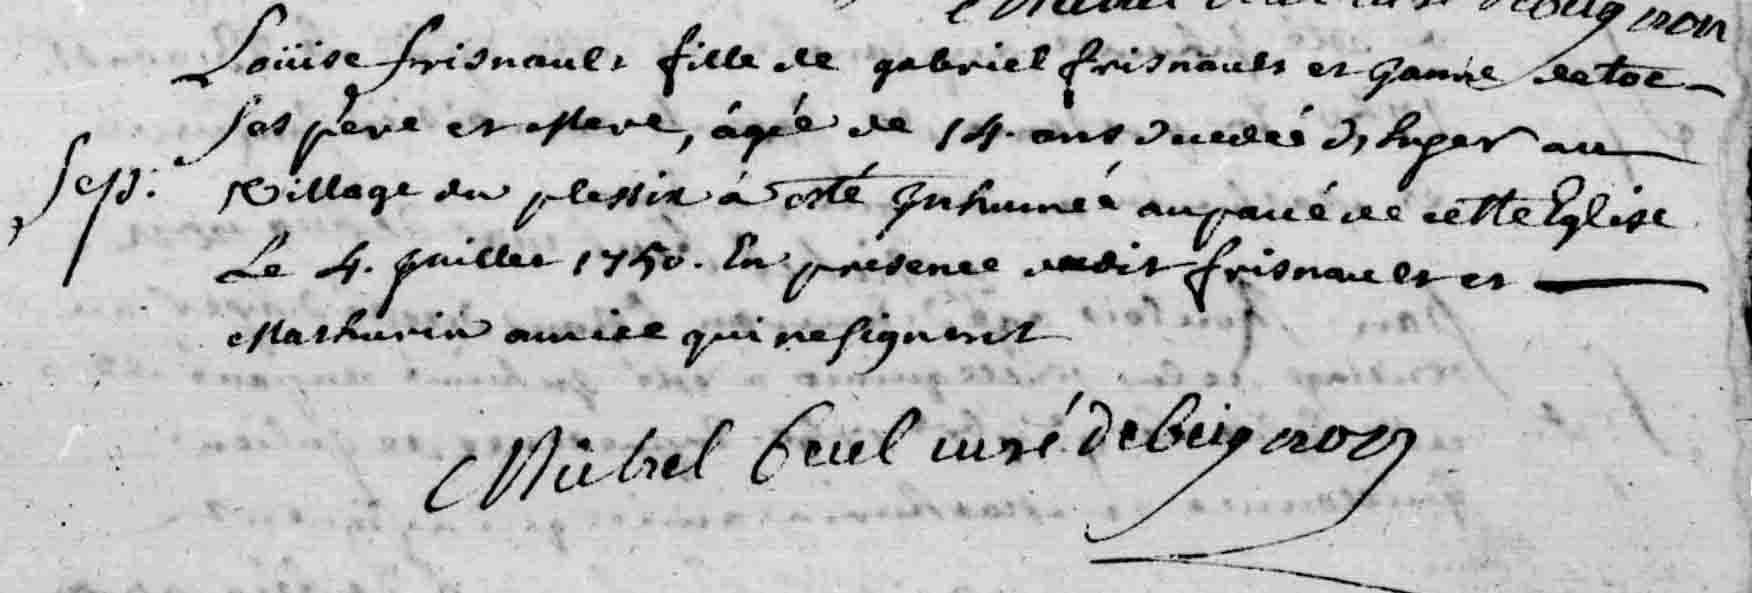 Michel Gruel curé de beignon
Loüise frisnault fille de gabriel frisnault et Janne
ses pere et Mere, âgée de 14. ans au
Sep: Village du plessix à esté Inhumée au pavé de cette Eglise
Le 4. Juillet 1750. En presence dudit frisnault et
Mathurin amice qui ne signent
Michel curé de beignon